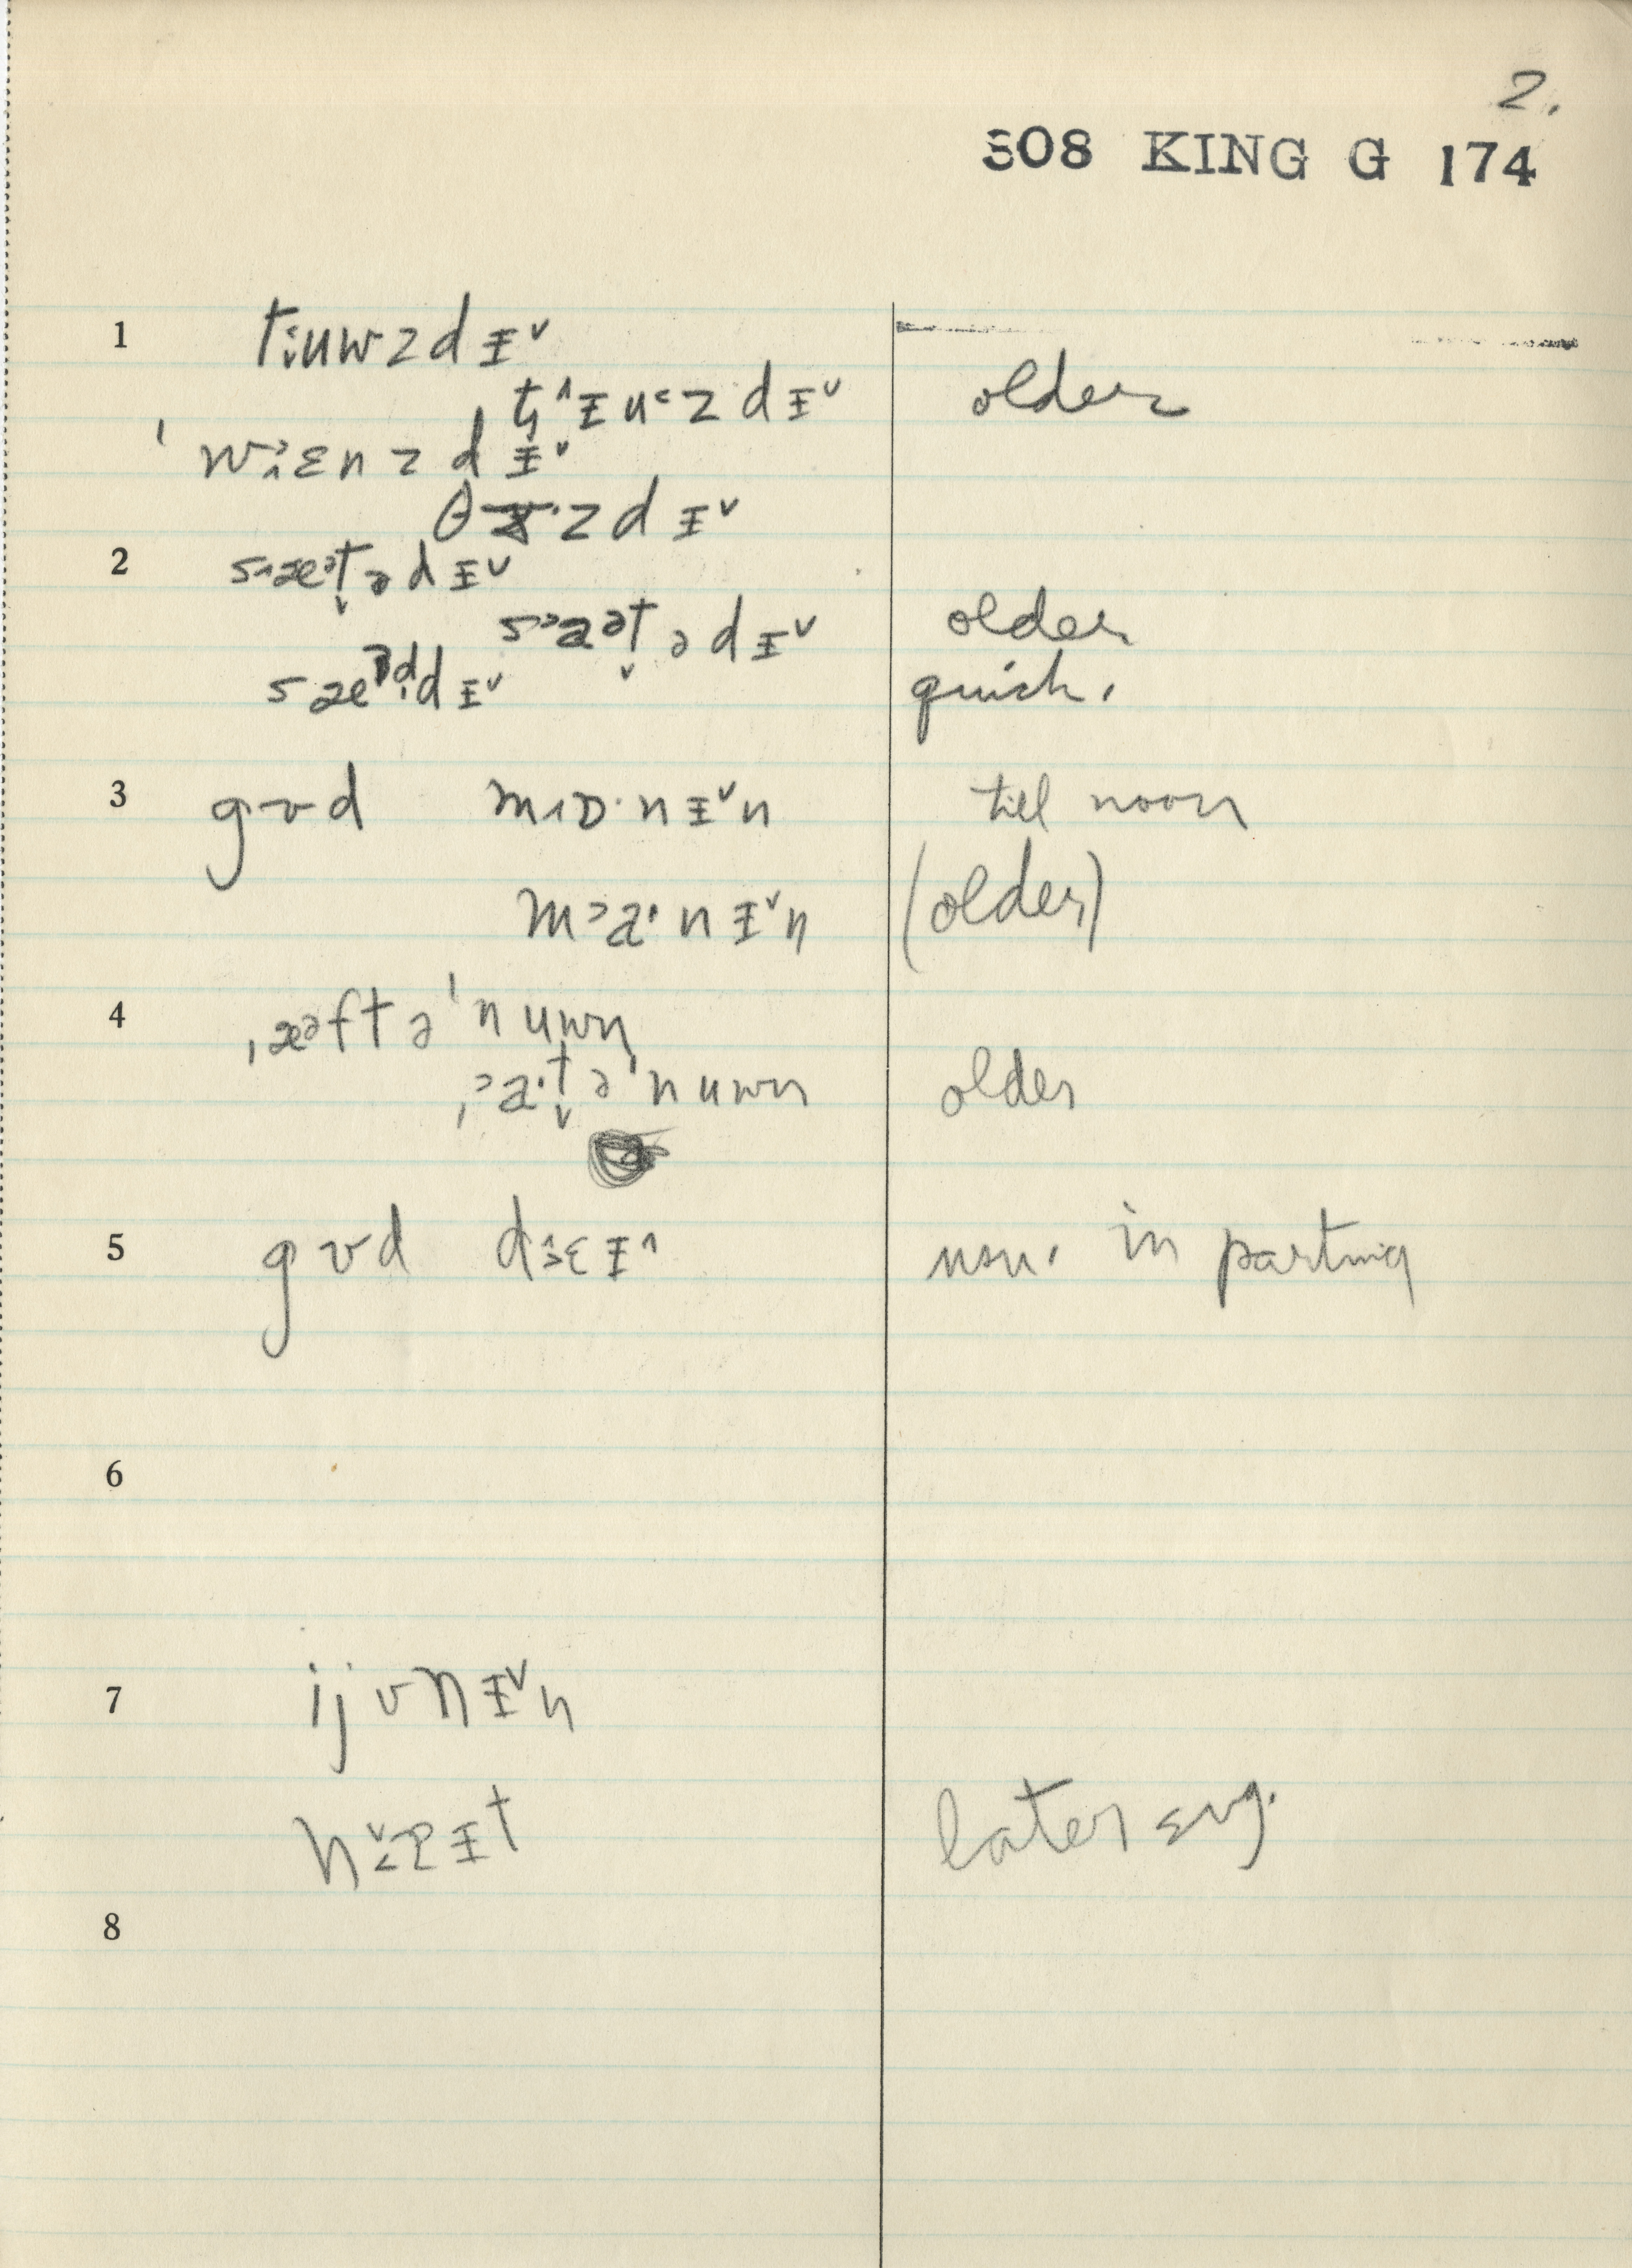 2.
S08 KING G 174
1 tɨuwzdɪ˅
t̬˄ɪu˂zdɪ˅ older
ˈw˒ɛnzdɪ˅
θɝ·zdɪ˅
2 sæᵊt̬ədɪ˅
s˃aᵊt̬ədɪ˅ older
sæᵊdɪ˅ quick.
3 gʊd mɒ·nɪ˅n till noon
m˃a·nɪ˅n (older)
4 ˌæᵊftəˈnuwn
ˌ˃a·t̬əˈnuwn older
5 gʊd d˔ɛɪ˄ usu. in parting
6
7 ijvnɪ˅n
n˅ɐɪt later evg.
8